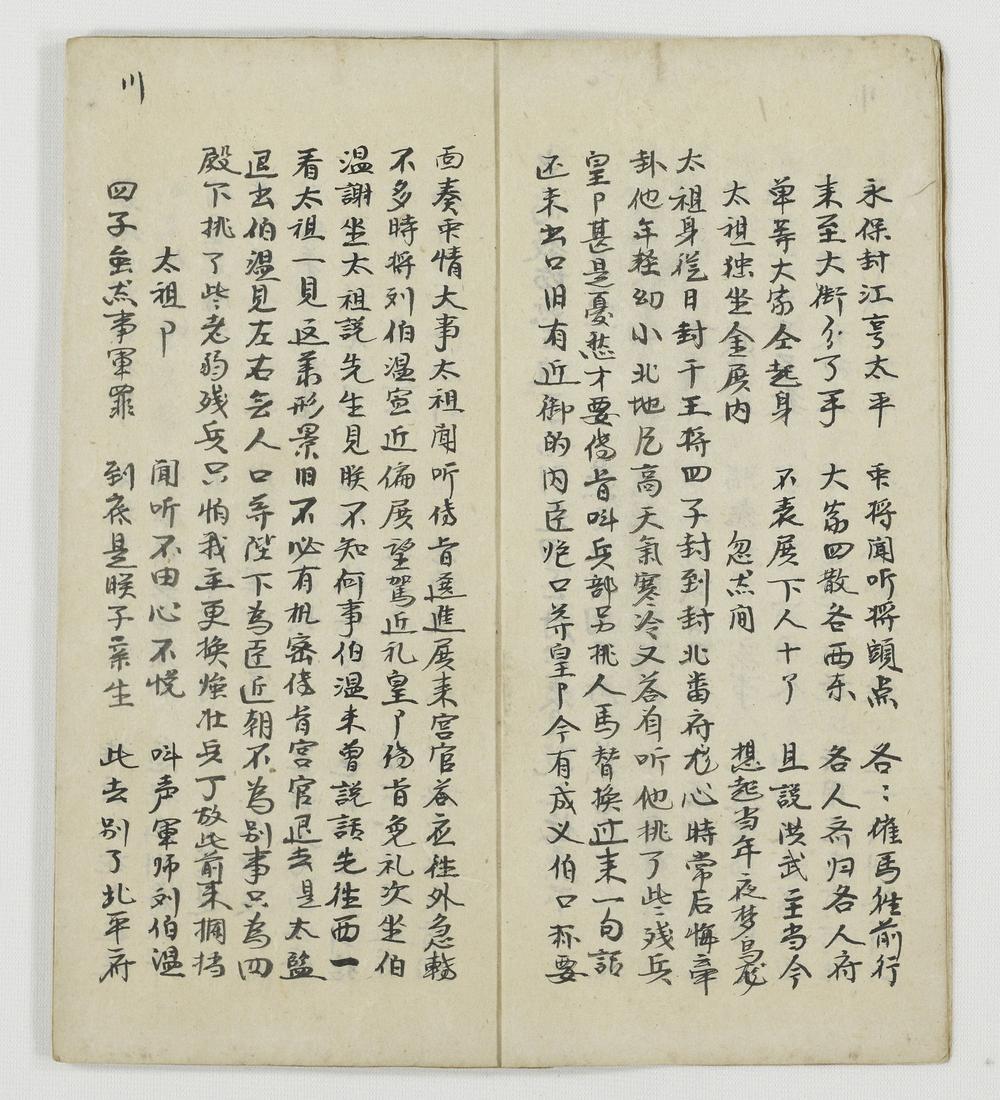 永保封江亨太平 眾将闻听将頭点 各〻催馬往前行
来至大街分了手 大家四散各西东 各人斉归各人府
单等大家仝起身 不表展下人十了 且説洪武主当今
太祖独坐金展内 忽然间 想起当年夜梦乌龙
太祖身從日封干王将四子封到封北畨府龙心時常后悔牵
卦他年轻幼小北地尼高天氣寒冷又答有听他挑了些残兵
皇卩甚是憂愁才要傳旨呌兵部另挑人馬替换过来一句話
还未出口旧有近御的内臣 口奔皇卩今有成义伯口称要
面奏軍情大事太祖闻听傳旨 進展来宫官答应往外急轉
不多時将刘伯温宣近偏展望駕近礼皇卩傳旨免礼次坐伯
温謝坐太祖説先生見朕不知何事伯温未曾説話先往西一
看太祖一見这萧形景旧不必有机密傳旨宫官退去是太監
退出伯温見左右無人口奔陛下為臣近朝不為别事只為四
殿下挑了些老弱残兵只怕我主更换強壮兵丁故此前来拥挡
太祖卩 闻听不由心不悦 呌声軍师刘伯温
四子無然事軍罪 到底是朕子亲生 此去别了北平府
川